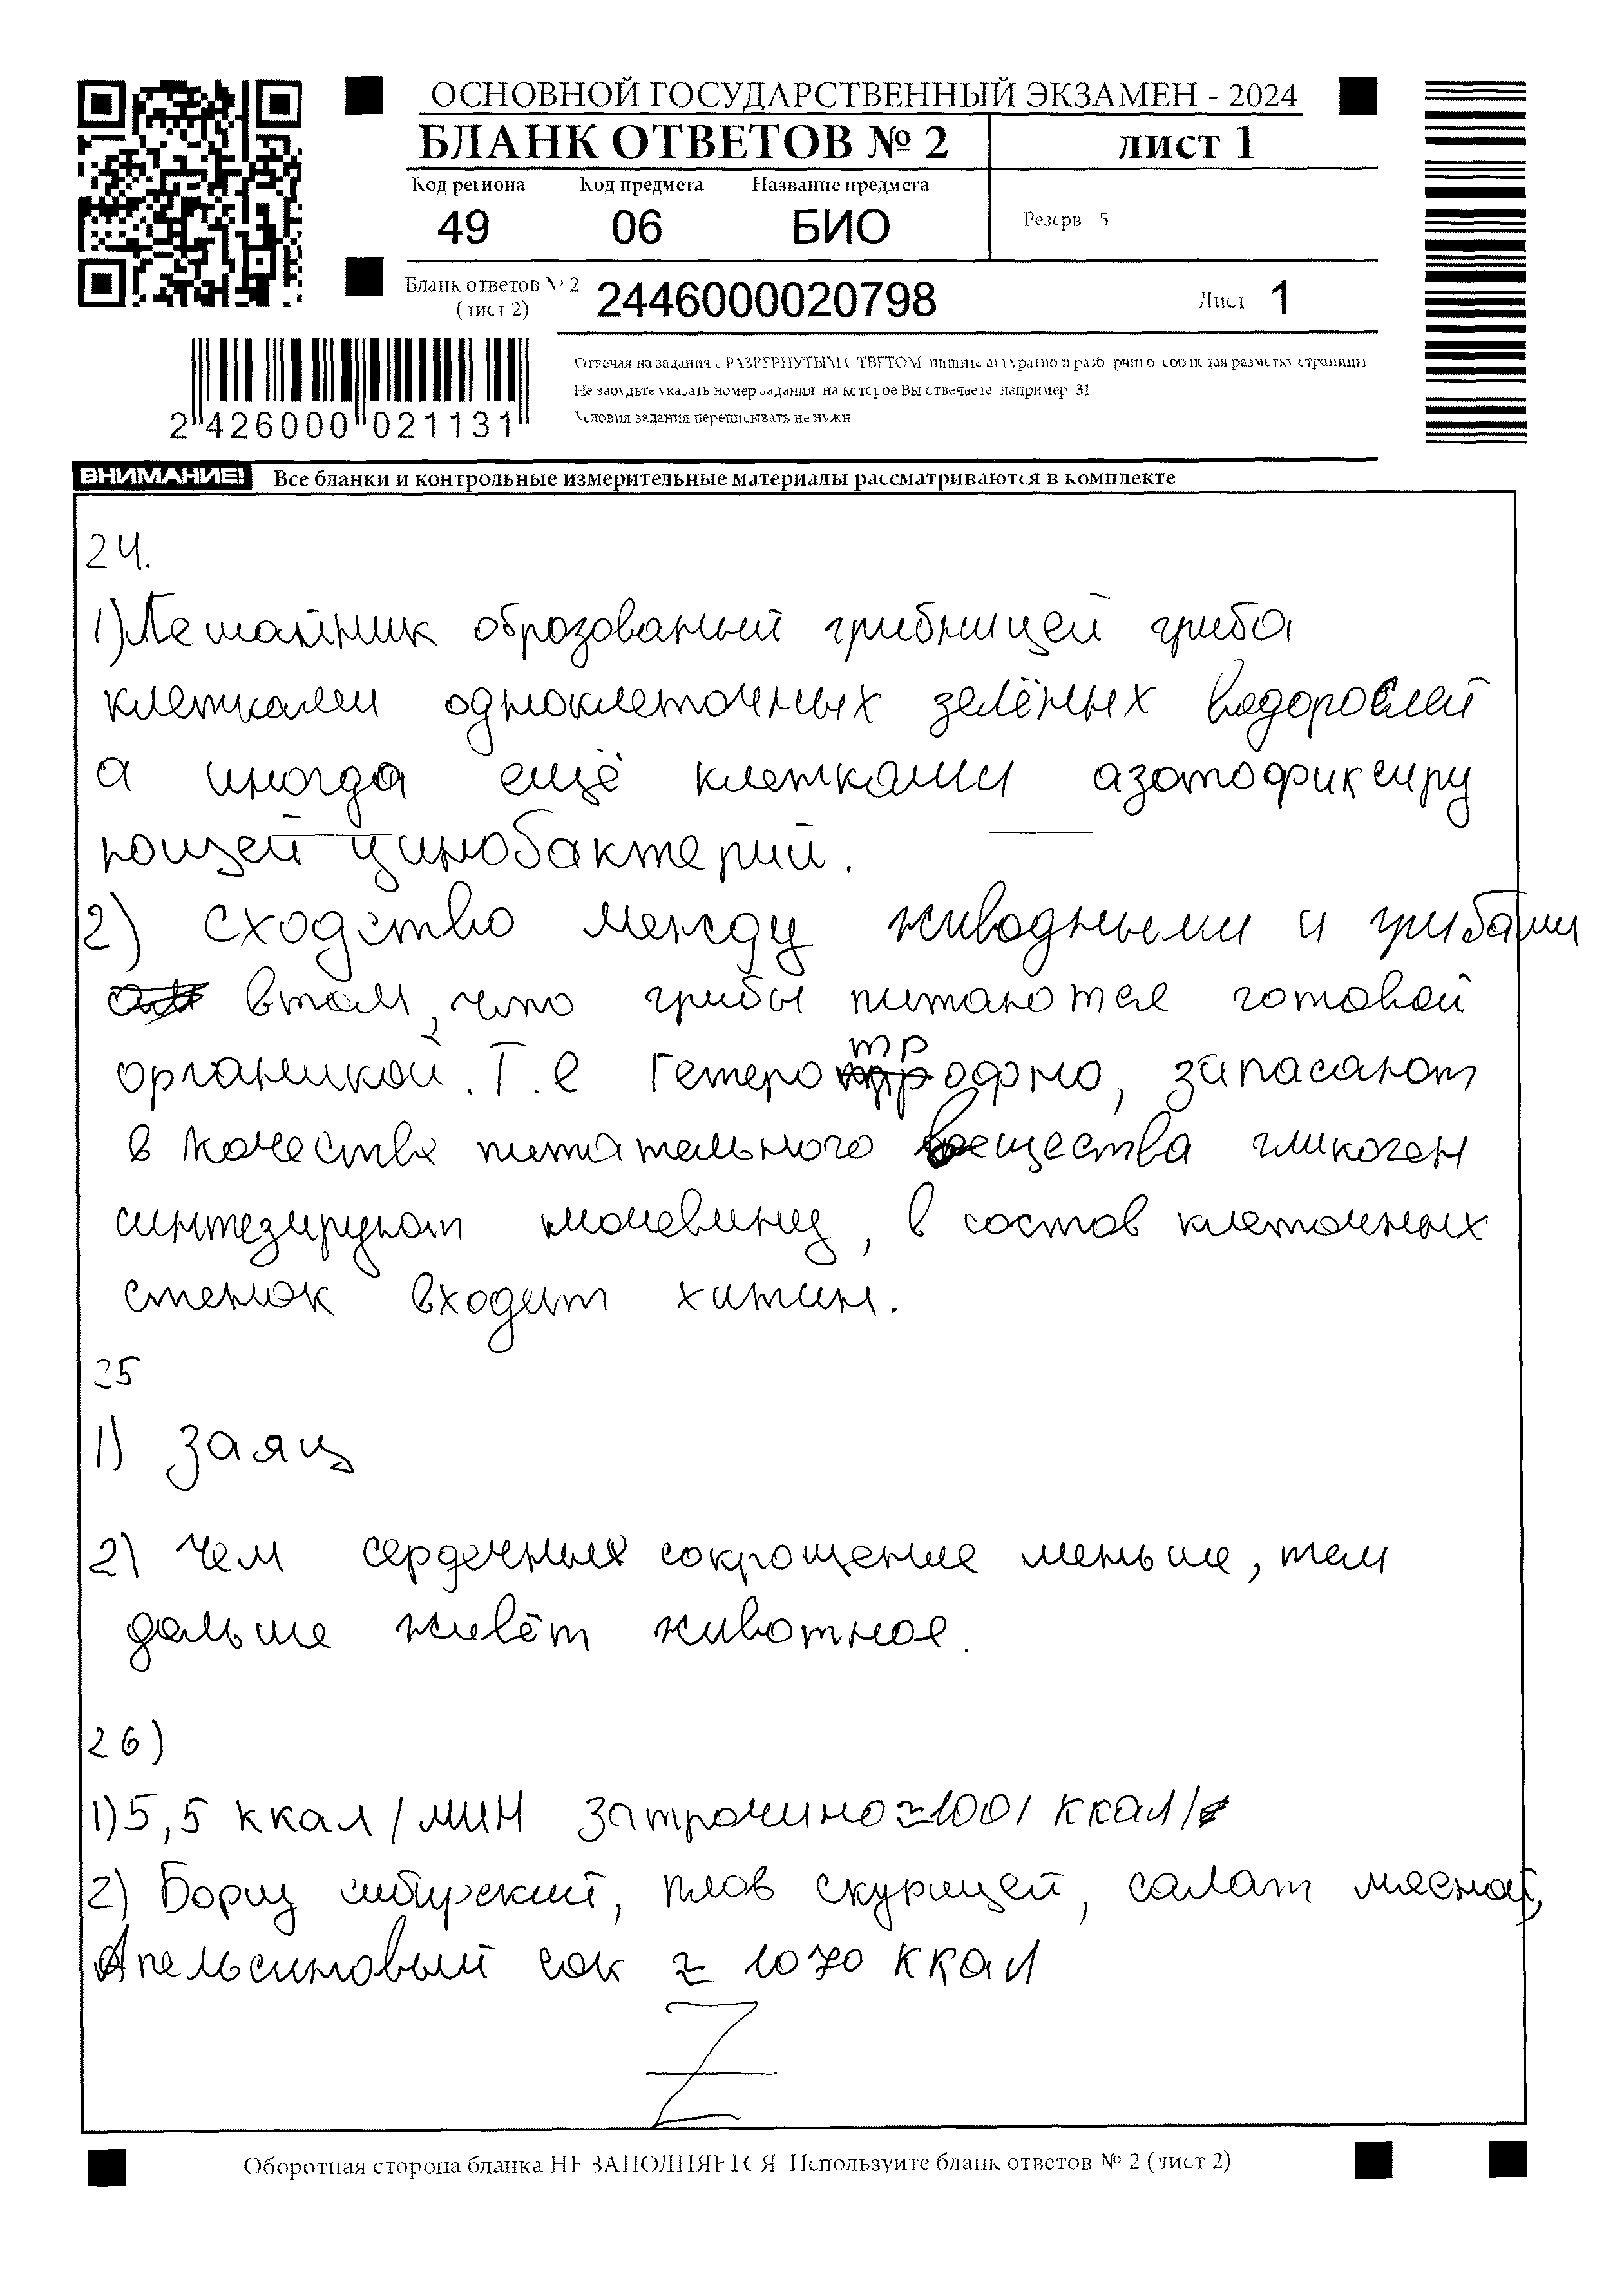 ОСНОВНОЙ ГОСУДАРСТВЕННЫЙ ЭКЗАМЕН - 2024
БЛАНК ОТВЕТОВ № 2
лист 1
Код региона
Код предмета
Название предмета
49
06
БИО
Резерв 5
Бланк ответов № 2
(лист 2)
2446000020798
Лист 1
Отвечая на задания с РАЗВЕРНУТЫМ ОТВЕТОМ пишите аккуратно и разборчиво соблюдая разметку страницы
Не забудьте указать номер задания на которое Вы отвечаете например 31
Условия задания переписывать не нужно
2 426000 021131
ВНИМАНИЕ! Все бланки и контрольные измерительные материалы рассматриваются в комплекте
24.
1) Лешайник образованый грибницей гриба
клетками одноклеточных зелёных водорослей
а иногда ещё клетками азотофиксиру
ющей цинобактерии.
2) сходство между живодными и грибами
в том, что грибы питаются готовой
органикой. Т.е Гетеротрофно, запасают
в качестве питательного вещества гликоген
синтезируют мочевину, в состав клеточных
стенок входит хитин.
25
1) заяц
2) Чем сердечныя сокрощение меньше, тем
дальше живёт животное.
26)
1) 5,5 ккал/мин затрочино ≈1001 ккал/
2) Борщ сибирский, плов скурицей, салат мясной,
Апельсиновый сок ≈ 1070 ккал
Z
Оборотная сторона бланка НЕ ЗАПОЛНЯЕТСЯ Используйте бланк ответов № 2 (лист 2)